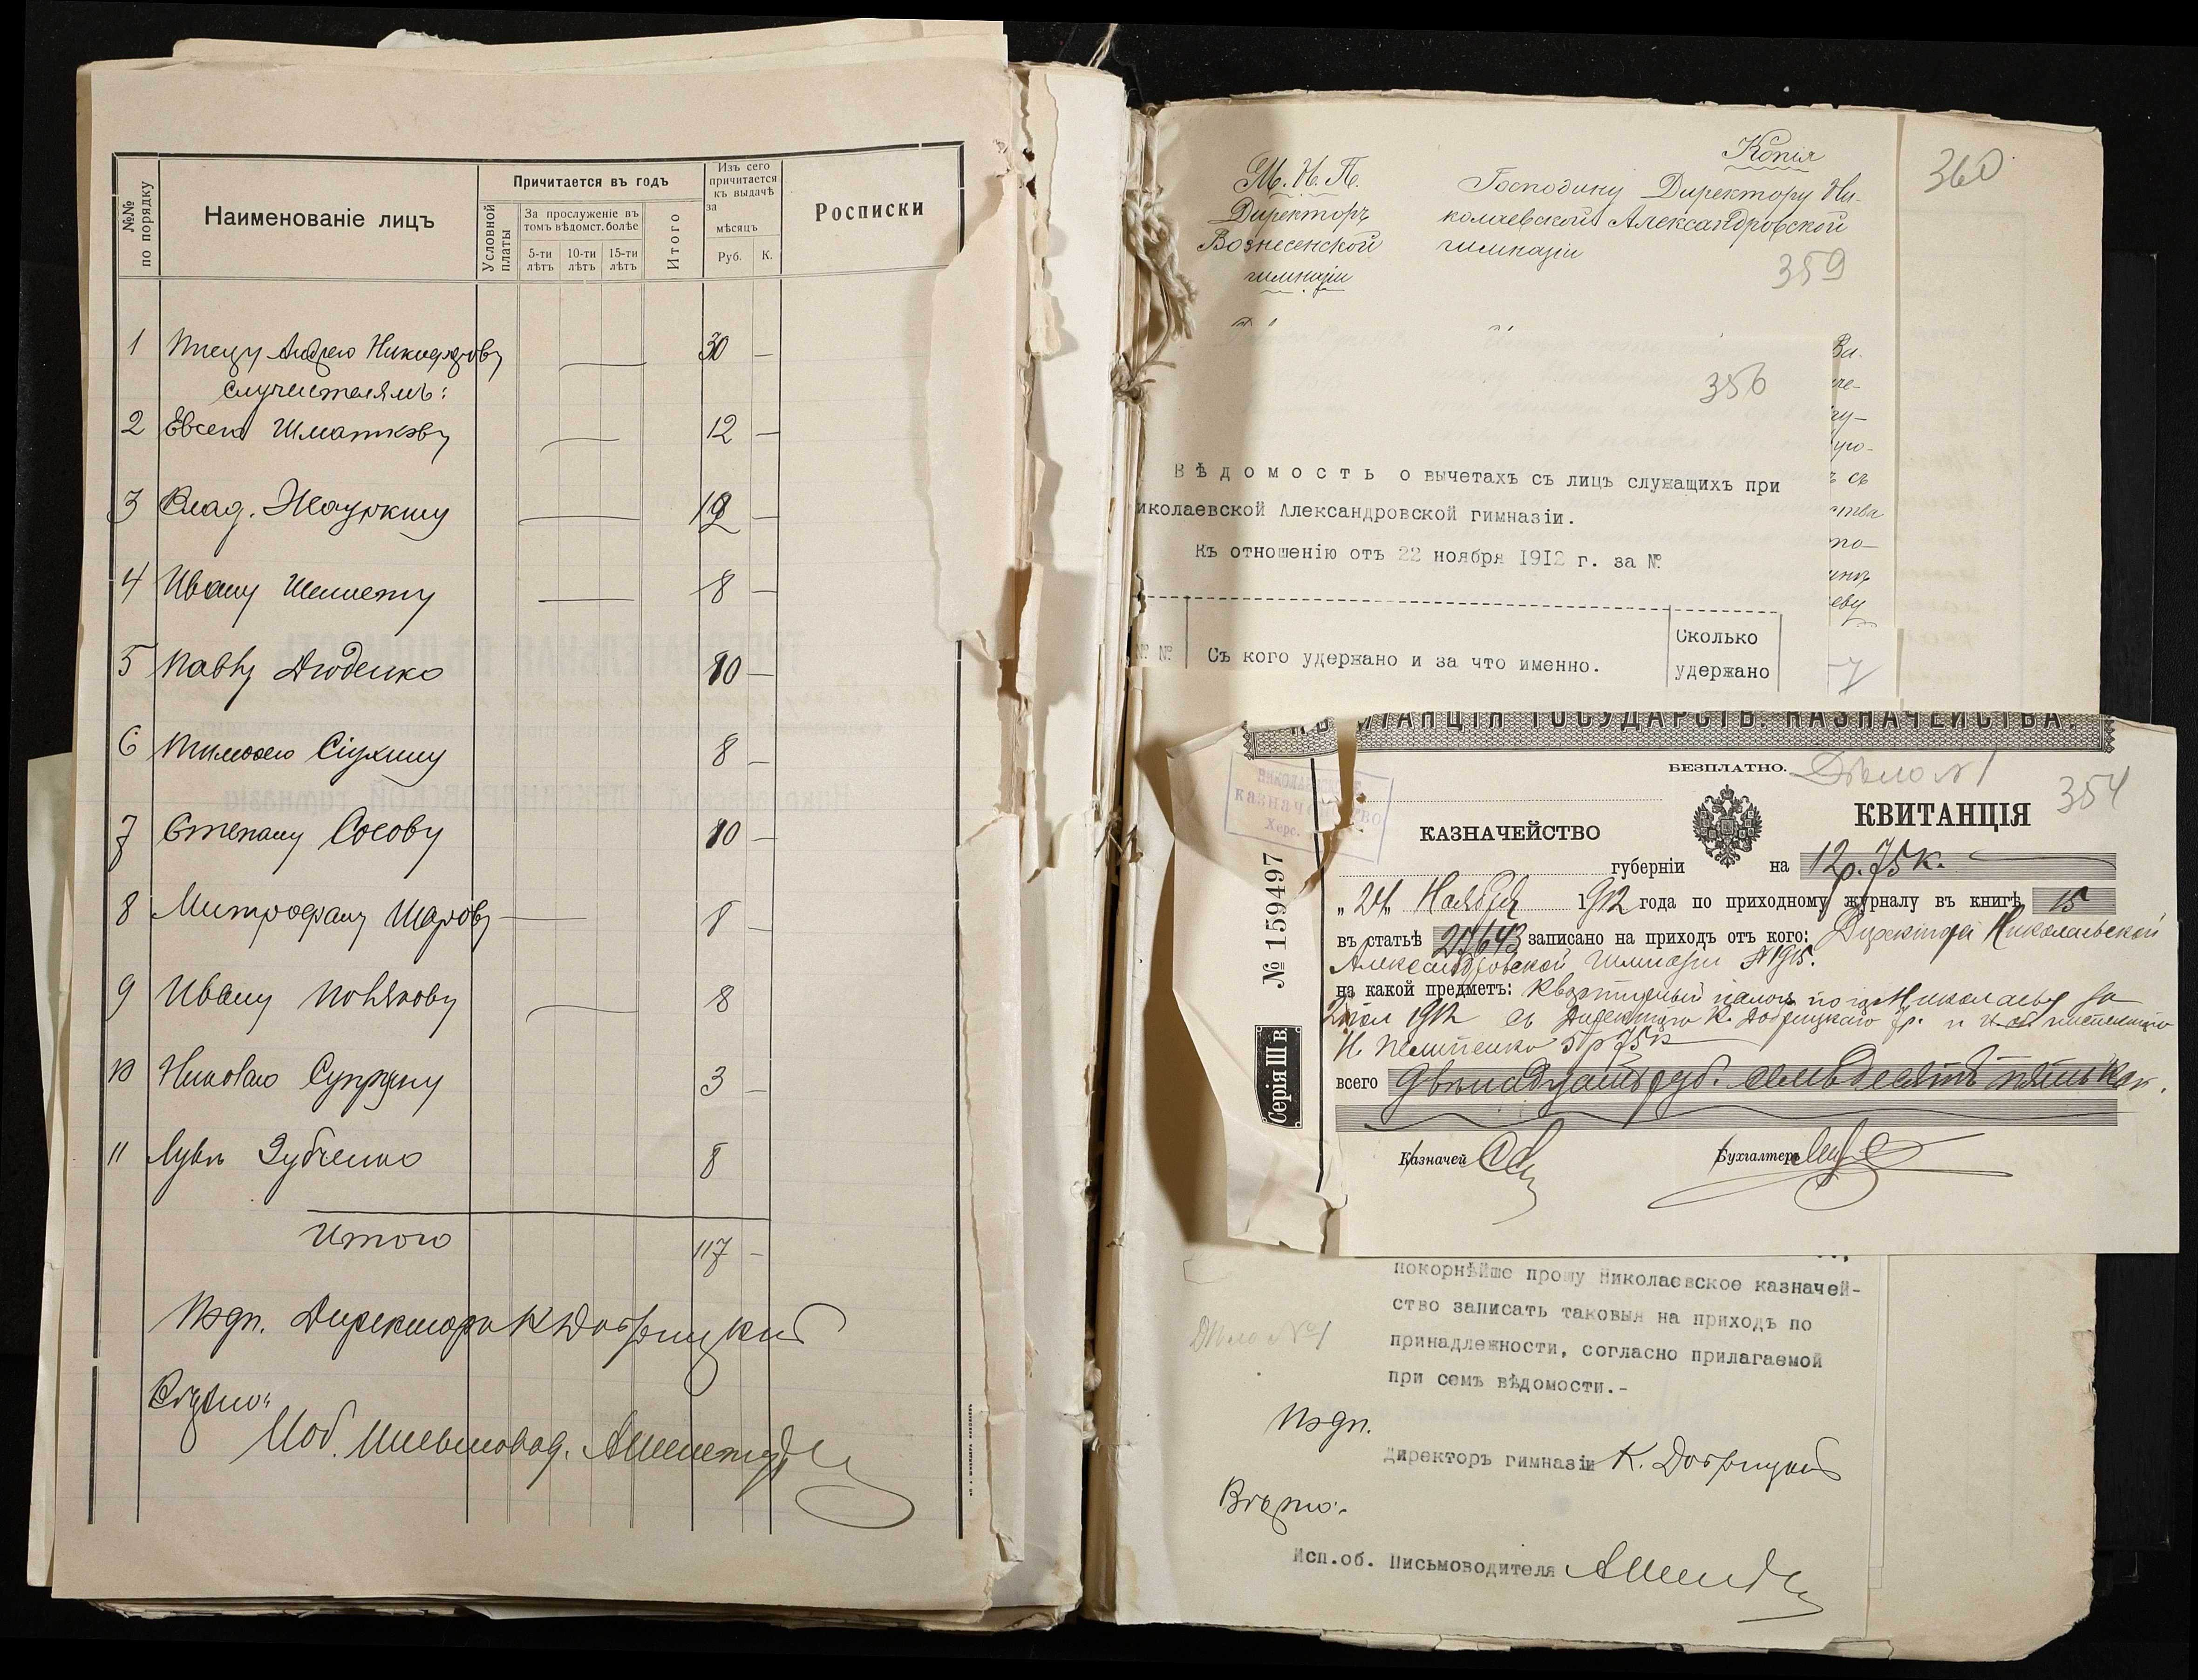 №№ по порядку
Наименованіе лицъ
Причитается въ годъ
Условной платы
За прослуженіе въ томъ вѣдомст. болѣе
5-ти лѣтъ
10-ти лѣтъ
15-ти лѣтъ
Итого
Изъ сего причитается къ выдачѣ за
мѣсяцъ
Руб. К.
Росписки
1 Андрею 30 —
Служителямъ:
2 Евсею Шматкову 12 —
3 Влад. 12 —
4 Ивану Шемету 8 —
5 Павлу Дюденко 10 —
6 Тимофею 8 —
7 Степану Сосову 10 —
8 Митрофану Шарову 8 —
9 Ивану Полякову 8
10 Николаю Супруну 3 —
11 Луке Зубченко 8
Итого 117 —
Подп. Директоръ К Добрицкій
Вѣрно:
Иоб. Письмовод.
Копія
М. Н. П.
Директоръ
Вознесенской
гимназіи
Господину Директору Ни-
колаевской Александровской
гимназіи
360
359
356
Вѣдомость о вычетахъ съ лицъ служащихъ при
иколаевской Александровской гимназіи.
Къ отношенію отъ 22 ноября 1912 г. за №
№ №
Съ кого удержано и за что именно.
Сколько
удержано
КВИТАНЦІЯ ГОСУДАРСТВ. КАЗНАЧЕЙСТВА.
БЕЗПЛАТНО. Дѣло № 1
354
НИКОЛАЕВСКОЕ
казначейство
Херс.
КАЗНАЧЕЙСТВО
КВИТАНЦІЯ
губерніи на 12р. 75к.
№ 159497
Серія III в
„24" Ноября 1912 года по приходному журналу въ книгѣ 15
въ статьѣ записано на приходъ отъ кого: Директора Николаевской
Александровской Гимназіи № 1915.
на какой предметъ: Квартирный налогъ по г. Николаеву за
1912 съ Директора К. Добрицкаго 7р. и инспектора
5 р 75 к
всего Двѣнадцать руб. семьдесятъ пять коп.
Казначей
Бухгалтеръ
покорнѣйше прошу Николаевское казначей-
ство записать таковыя на приходъ по
принадлежности, согласно прилагаемой
при семъ вѣдомости.-
Дѣло №1
Подп.
Директоръ гимназіи К. Добрицкій
Вѣрно:
Исп.об. Письмоводителя